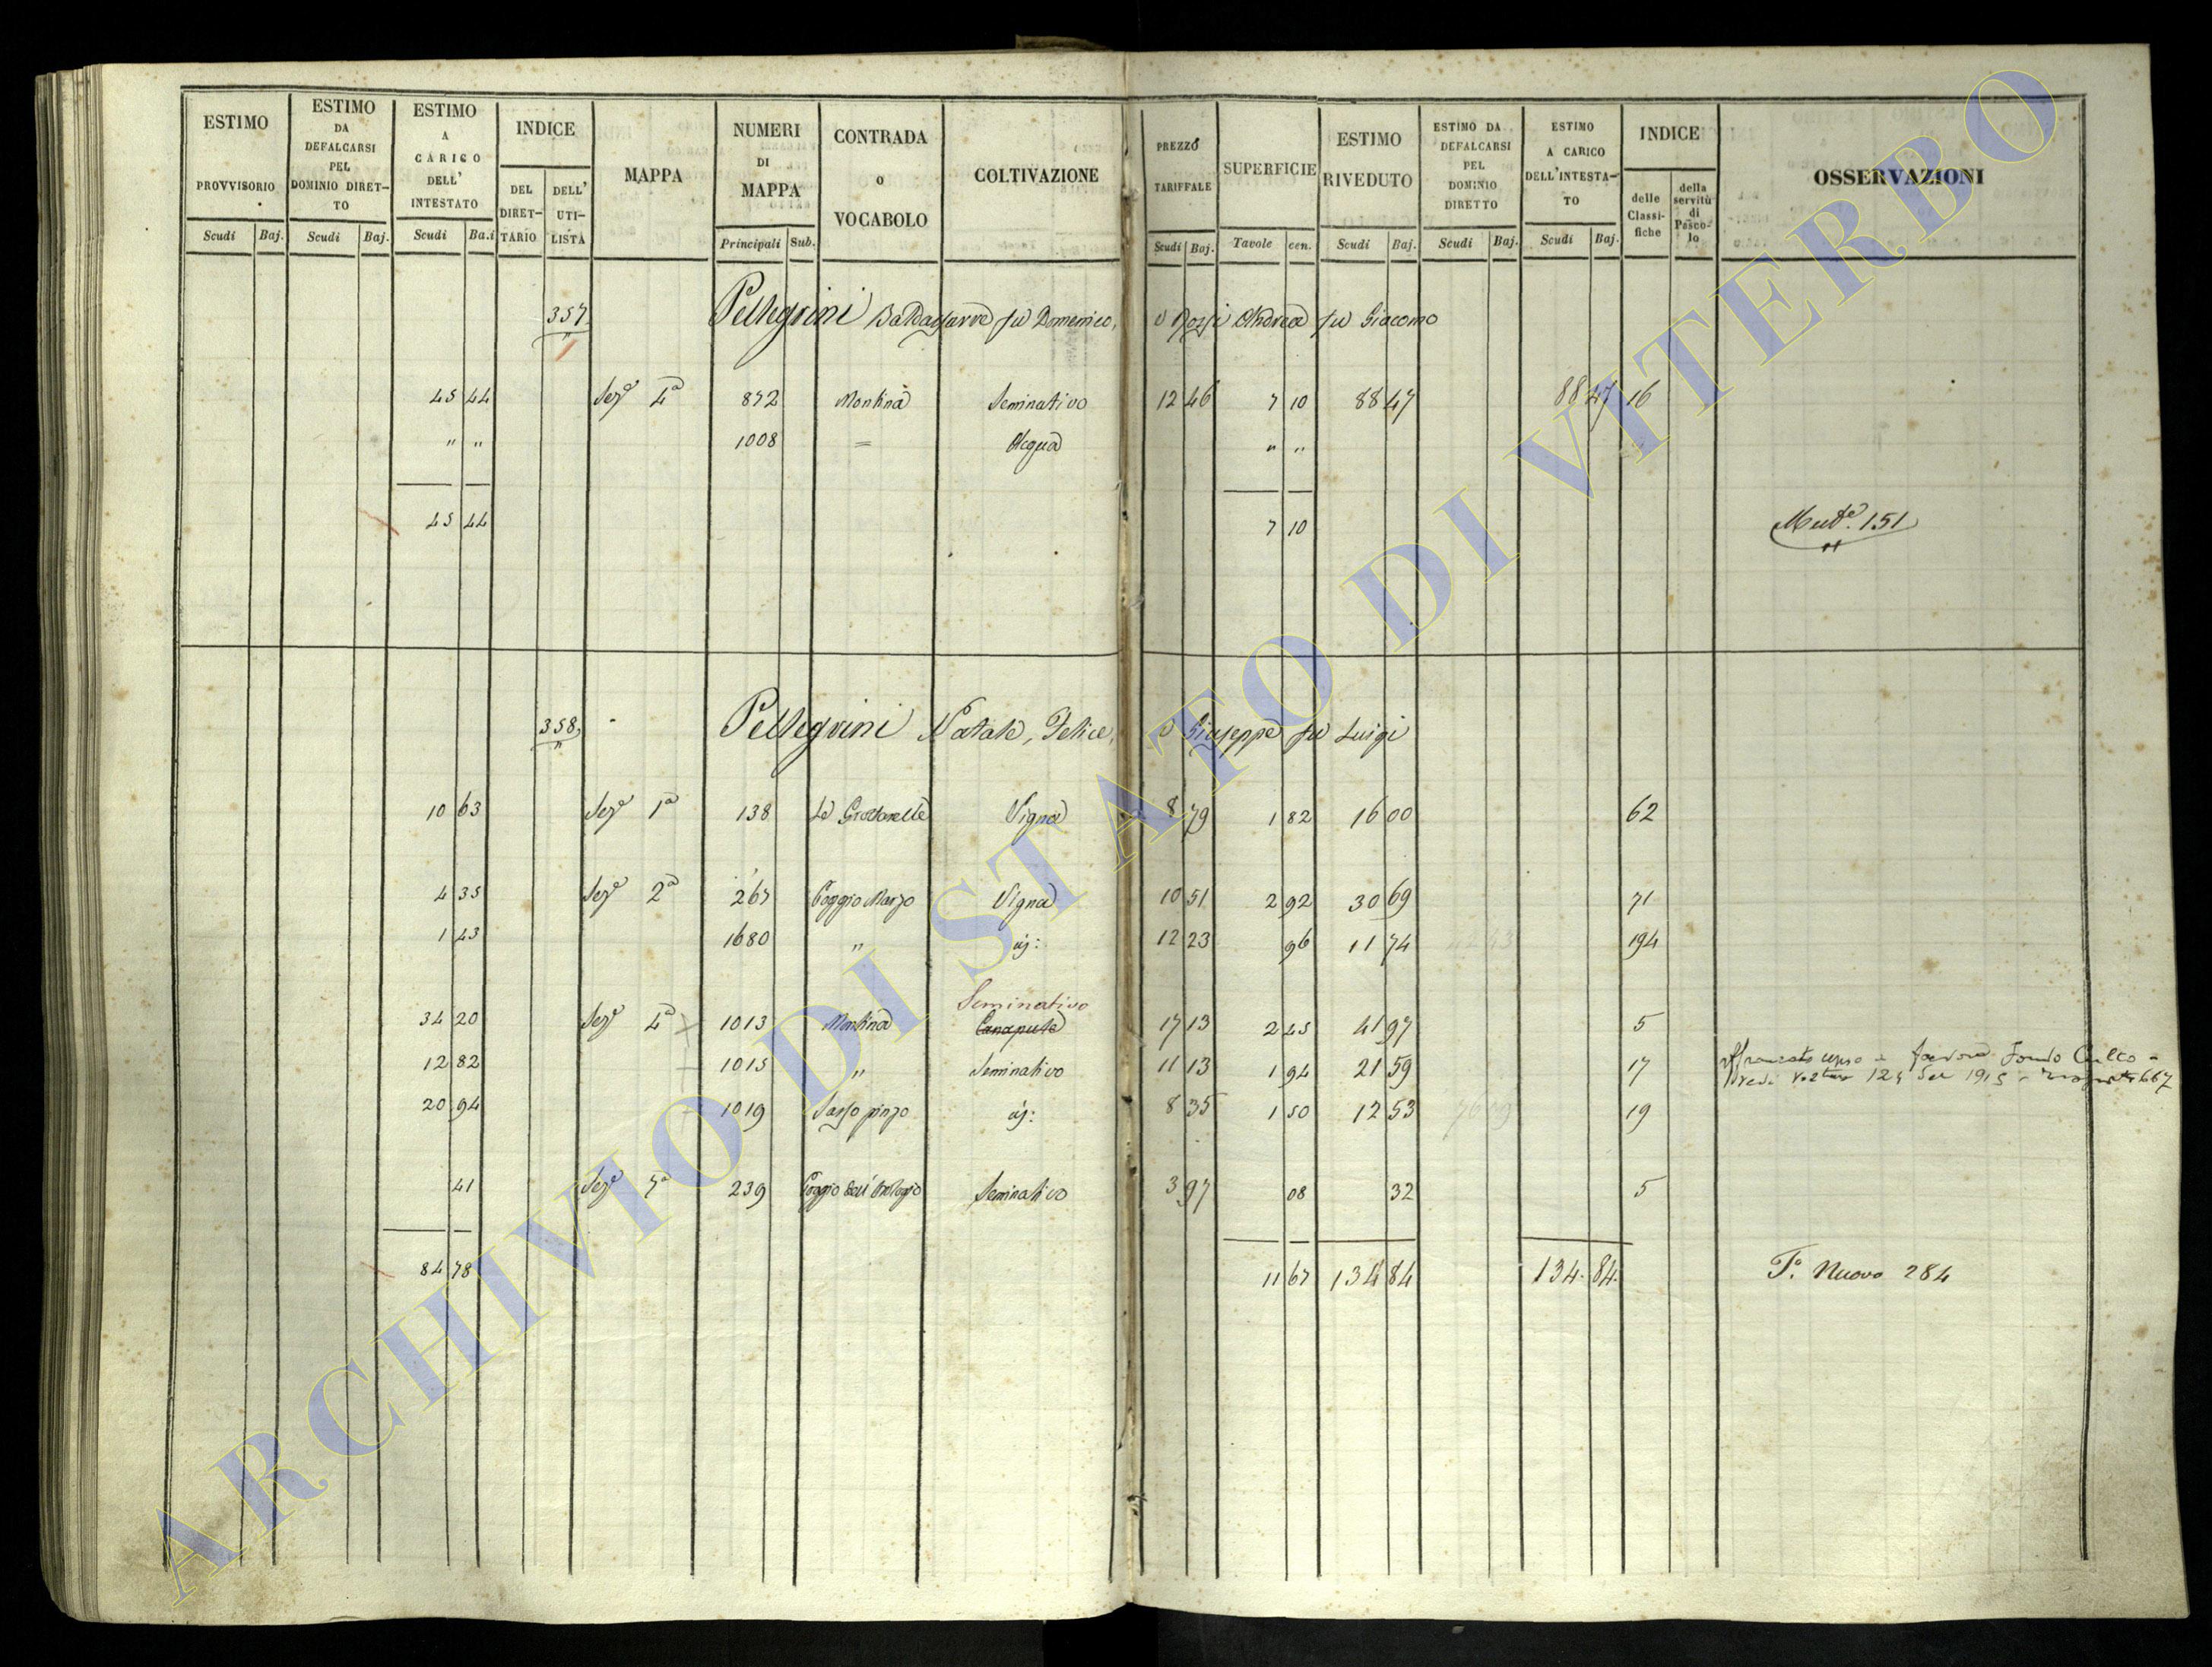 ESTIMO PROVVISORIO Scudi Baj.
ESTIMO DA DEFALCARSI PEL DOMINIO DIRET-TO Scudi Baj.
ESTIMO A CARICO DELL' INTESTATO Scudi Ba.i
INDICE DEL DIRET-TARIO DELL' UTI-LISTA
MAPPA
NUMERI DI MAPPA Principali Sub.
CONTRADA O VOCABOLO
COLTIVAZIONE
PREZZO TARIFFALE Scudi Baj.
SUPERFICIE Tavole cen.
ESTIMO RIVEDUTO Scudi Baj.
ESTIMO DA DEFALCARSI PEL DOMINIO DIRETTO Scudi Baj.
ESTIMO A CARICO DELL'INTESTA-TO Scudi Baj.
INDICE delle Classi-fiche della servitù di Pasco-lo
OSSERVAZIONI
357 Pellegrini Baldassarre fu Domenico, e Rossi Andrea fu Giacomo
45 44 Sez.e 4a 872 Montina Seminativo 12 46 7 10 88 47 88 47 16
" " 1008 = Acqua " "
45 44 7 10 Mut.e 151
358 Pellegrini Natale, Felice, e Giuseppe fu Luigi
10 63 Sez.e 1a 138 Le Grottarelle Vigna 8 79 1 82 16 00 62
4 35 Sez.e 2a 267 Poggio Marzo Vigna 10 51 2 92 30 69 71
1 43 1680 " id: 12 23 96 11 74 194
Seminativo
34 20 Sez.e 4a 1013 Montina Canapule 17 13 2 45 41 97 5
12 82 1015 " Seminativo 11 13 1 94 21 59 17
20 94 1019 Sasso pinzo id: 8 35 1 50 12 53 19
Affrancato censo a favore Fondo Culto -
vedi 1915
41 Sez.e 7a 239 Poggio dell'Orologio Seminativo 3 97 08 32 5
84 78 11 67 134 84 134. 84. F.o Nuovo 284
ARCHIVIO DI STATO DI VITERBO